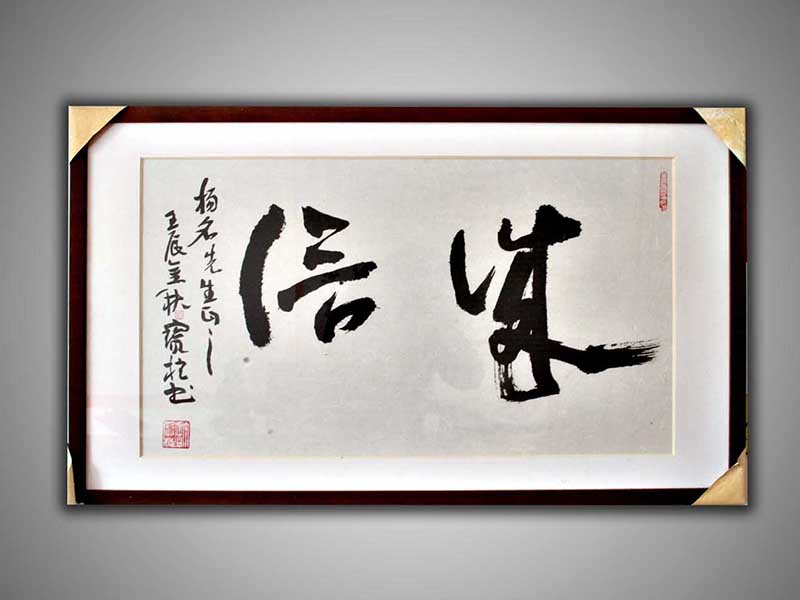 诚信
杨名先生正之
壬辰金秋 书